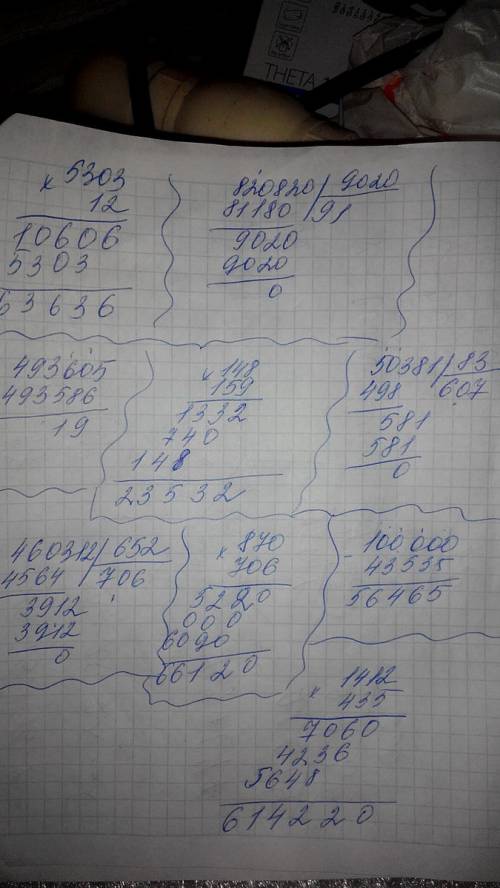 THETA
× 5303
12
10606
5303
63636
820820 | 9020
81180 | 91
9020
9020
0
493605
493586
19
× 148
159
1332
740
148
23532
50381 | 83
498 | 607
581
581
0
460312 | 652
4564 | 706
3912
3912
0
× 870
706
5220
000
6090
66120
- 100000
43535
56465
× 1412
435
7060
4236
5648
614220